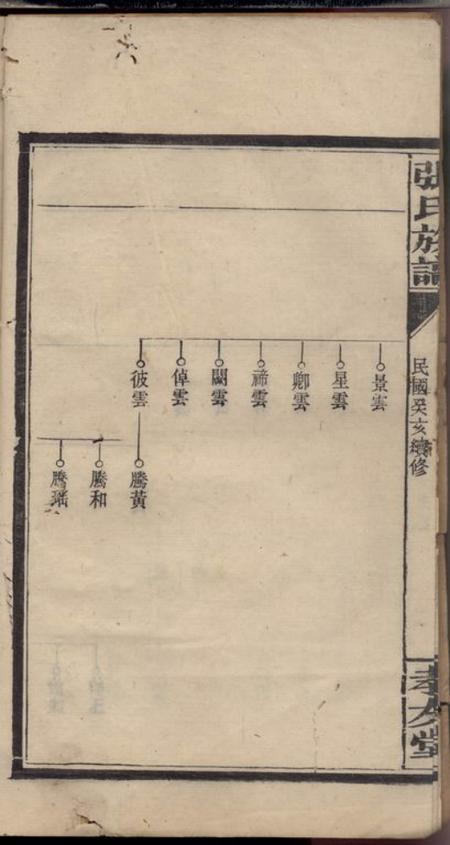 張氏族譜
民國癸亥續修
孝友堂
景雲
星雲
卿雲
禘雲
闢雲
倬雲
彼雲
騰黃
騰和
騰璠